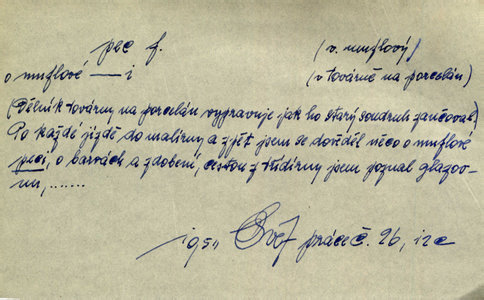 pec f. (v. muflový)
o muflové — i (v továrně na porcelán)
(Dělník továrny na porcelán vypravuje jak ho starý soudruh zaučoval)
Po každé jízdě do malírny a zpět jsem se dověděl něco o muflové
peci, o barvách a zdobení, cestou z třídírny jsem poznal glazov-
nu,.......
1951 Svět práce č. 26, 12c